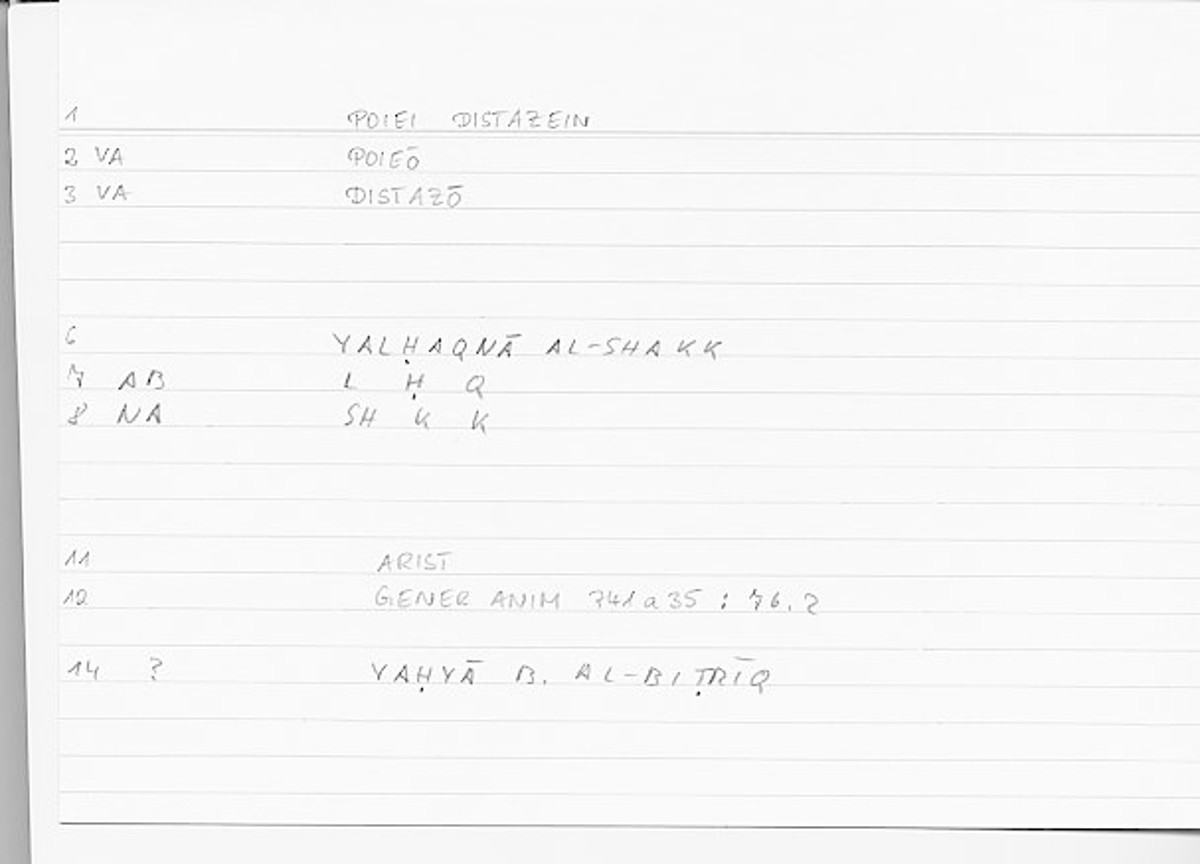 1 POIEI DISTAZEIN
2 VA POIEŌ
3 VA DISTAZŌ
6 YALḤAQNĀ AL-SHAKK
7 AB L Ḥ Q
8 NA SH K K
11 ARIST
12 GENER ANIM 741a35 : 76.2
14 ? YAḤYĀ B. AL-BIṬRĪQ